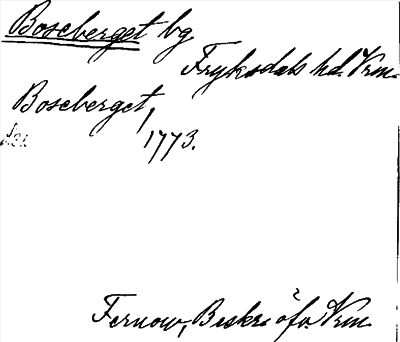 Boseberget bg
Fryksdals hd. Vrm.
Boseberget,
1773.
Fernow, Beskr. öfv. Vrm.